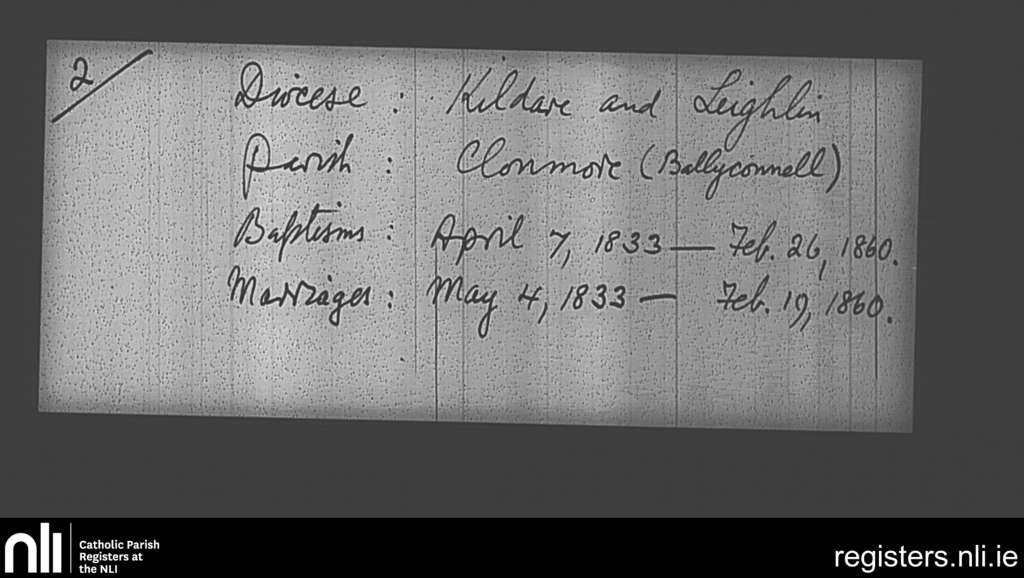 2/
Diocese : Kildare and Leighlin
Parish : Clonmore (Ballyconnell)
Baptisms : April 7, 1833 — Feb. 26, 1860.
Marriages : May 4, 1833 — Feb. 19, 1860.
nli
Catholic Parish
Registers at
the NLI
registers.nli.ie